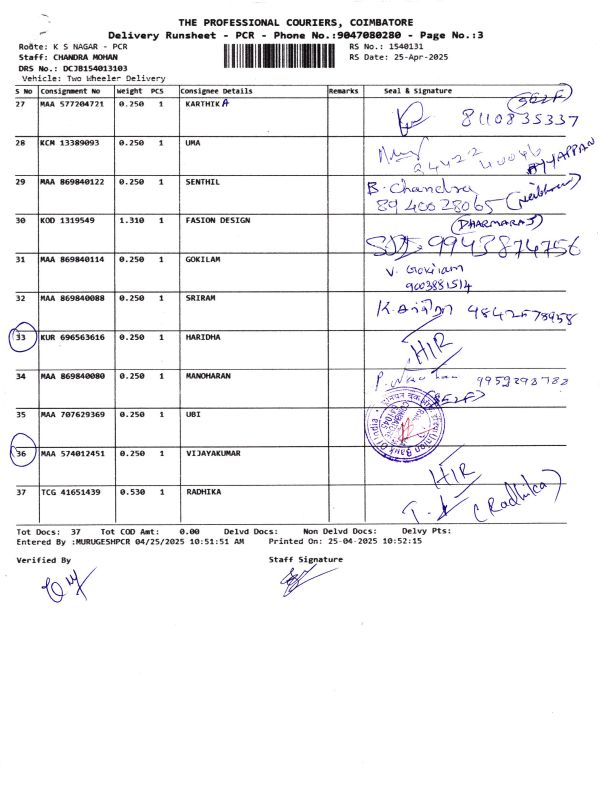 THE PROFESSIONAL COURIERS, COIMBATORE
Delivery Runsheet - PCR - Phone No.:9047080280 - Page No.:3
Route: K S NAGAR - PCR RS No.: 1540131
Staff: CHANDRA MOHAN RS Date: 25-Apr-2025
DRS No.: DCJB154013103
Vehicle: Two Wheeler Delivery
S No Consignment No Weight PCS Consignee Details Remarks Seal & Signature
27 MAA 577204721 0.250 1 KARTHIKA (SELF)
8110835337
28 KCM 13389093 0.250 1 UMA
AYYAPPAN
29 MAA 869840122 0.250 1 SENTHIL B. Chandra
8940028065
30 KOD 1319549 1.310 1 FASION DESIGN (DHARMARAJ)
9943874756
31 MAA 869840114 0.250 1 GOKILAM V. Gokilam
9003881514
32 MAA 869840088 0.250 1 SRIRAM 9842578958
33 KUR 696563616 0.250 1 HARIDHA HIR
34 MAA 869840080 0.250 1 MANOHARAN 9959293782
(SELF)
35 MAA 707629369 0.250 1 UBI Union Bank Of India
36 MAA 574012451 0.250 1 VIJAYAKUMAR HIR
37 TCG 41651439 0.530 1 RADHIKA (Radhika)
Tot Docs: 37 Tot COD Amt: 0.00 Delvd Docs: Non Delvd Docs: Delvy Pts:
Entered By :MURUGESHPCR 04/25/2025 10:51:51 AM Printed On: 25-04-2025 10:52:15
Verified By Staff Signature